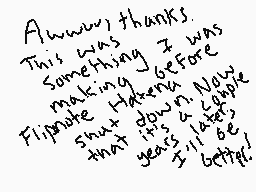 Awwww, thanks.
This was
something I was
making before
Flipnote Hatena
shut down. Now
that it's a couple
years later,
I'll be
better!